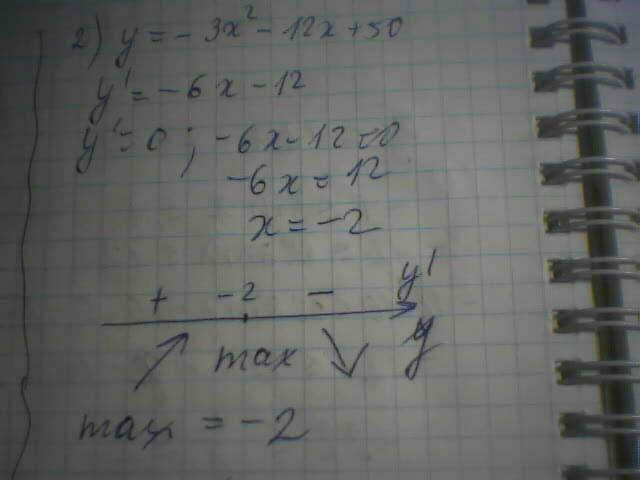 2) y = - 3x² - 12x + 50
y' = - 6x - 12
y' = 0 ; - 6x - 12 = 0
- 6x = 12
x = - 2
+ - 2 - y'
max y
max = - 2